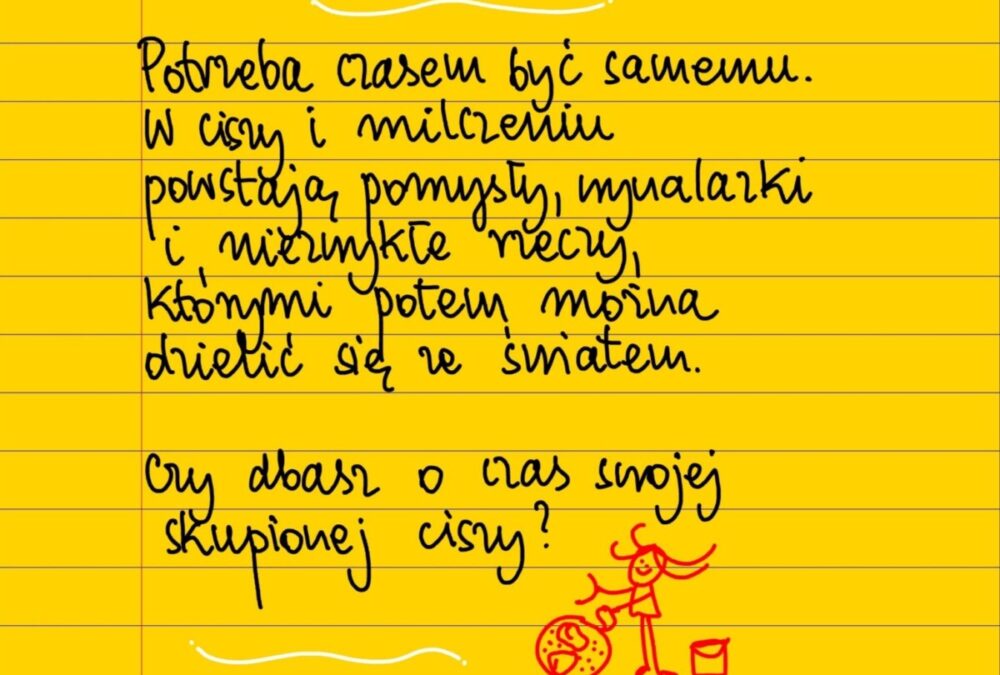 Potrzeba czasem być samemu.
W ciszy i milczeniu
powstają pomysły, wynalazki
i niezwykłe rzeczy,
którymi potem można
dzielić się ze światem.
Czy dbasz o czas swojej
skupionej ciszy?